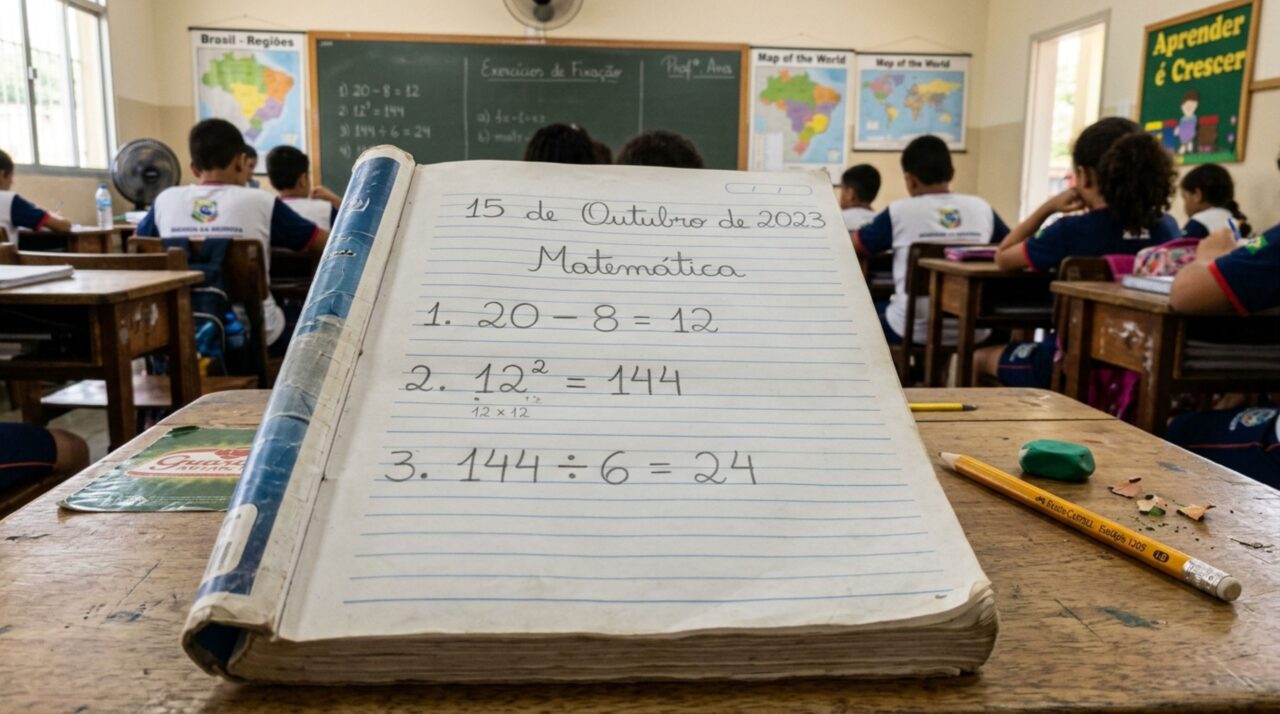 Brasil - Regiões
Exercícios de Fixação
Profª. Ana
1) 20 - 8 = 12
2) = 144
3) 144 ÷ 6 = 24
4)
a)
Map of the World
Map of the World
Aprender
é Crescer
15 de Outubro de 2023
Matemática
1. 20 – 8 = 12
2. 12² = 144
12 × 12
3. 144 ÷ 6 = 24